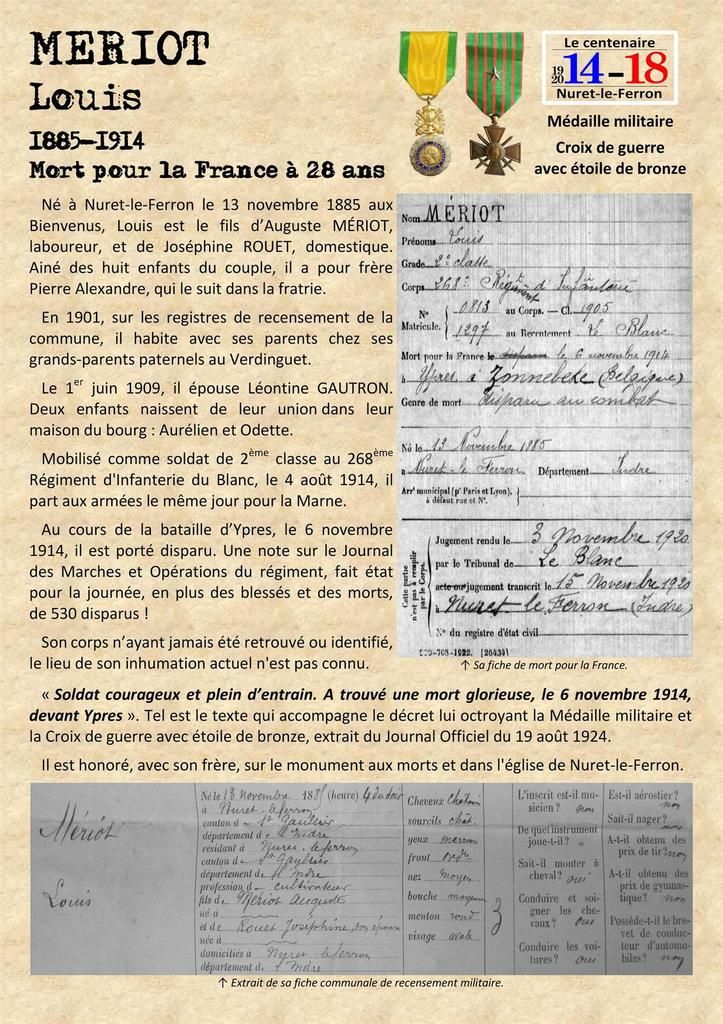 MERIOT
Louis
1885–1914
Mort pour la France à 28 ans
Le centenaire
1914–18
20
Nuret-le-Ferron
Médaille militaire
Croix de guerre
avec étoile de bronze
Né à Nuret-le-Ferron le 13 novembre 1885 aux
Bienvenus, Louis est le fils d'Auguste MÉRIOT,
laboureur, et de Joséphine ROUET, domestique.
Ainé des huit enfants du couple, il a pour frère
Pierre Alexandre, qui le suit dans la fratrie.
En 1901, sur les registres de recensement de la
commune, il habite avec ses parents chez ses
grands-parents paternels au Verdinguet.
Le 1er juin 1909, il épouse Léontine GAUTRON.
Deux enfants naissent de leur union dans leur
maison du bourg : Aurélien et Odette.
Mobilisé comme soldat de 2ème classe au 268ème
Régiment d'Infanterie du Blanc, le 4 août 1914, il
part aux armées le même jour pour la Marne.
Au cours de la bataille d'Ypres, le 6 novembre
1914, il est porté disparu. Une note sur le Journal
des Marches et Opérations du régiment, fait état
pour la journée, en plus des blessés et des morts,
de 530 disparus !
Son corps n'ayant jamais été retrouvé ou identifié,
le lieu de son inhumation actuel n'est pas connu.
Nom MÉRIOT
Prénoms Louis
Grade 2e classe
Corps 268e Régiment d'Infanterie
N° 0813 au Corps. — Cl. 1905
Matricule. 1297 au Recrutement Le Blanc
Mort pour la France le le 6 novembre 1914
à Ypres à Zonnebeke (Belgique)
Genre de mort disparu au combat
Né le 13 Novembre 1885
à Nuret-le Ferron Département Indre
Arrt municipal (pr Paris et Lyon),
à défaut rue et N°.
Cette partie
n'est pas à remplir
par le Corps.
Jugement rendu le 3 Novembre 1920
par le Tribunal de Le Blanc
acte ou jugement transcrit le 15 Novembre 1920
à Nuret le Ferron (Indre)
N° du registre d'état civil
-708-1922. [26434]
↑ Sa fiche de mort pour la France.
« Soldat courageux et plein d'entrain. A trouvé une mort glorieuse, le 6 novembre 1914,
devant Ypres ». Tel est le texte qui accompagne le décret lui octroyant la Médaille militaire et
la Croix de guerre avec étoile de bronze, extrait du Journal Officiel du 19 août 1924.
Il est honoré, avec son frère, sur le monument aux morts et dans l'église de Nuret-le-Ferron.
Mériot
Louis
Né le 13 novembre 1885 (heure) 4 du soir
à Nuret-le-ferron
canton de St Gaultier
département de l'Indre
résidant à Nuret-le-ferron
canton de St Gaultier
département de l'Indre
profession de cultivateur
fils de Mériot Auguste
né à
et de Rouet Joséphine, son épouse
née à
domiciliés à Nuret-le-ferron
département de l'Indre
Cheveux chatain
sourcils chat.
yeux marron
front ordre
nez moyen
bouche moyenne
menton rond
visage ovale
3
L'inscrit est-il mu-
sicien ? non
De quel instrument
joue-t-il ? "
Sait-il monter à
cheval ? oui
Conduire et soi-
gner les che-
vaux ? oui
Conduire les voi-
tures ? oui
Est-il aérostier ?
non
Sait-il nager ?
non
A-t-il obtenu des
prix de tir ? non
A-t-il obtenu des
prix de gymnas-
tique ? non
Possède-t-il le bre-
vet de conduc-
teur d'automo-
biles ? non
↑ Extrait de sa fiche communale de recensement militaire.